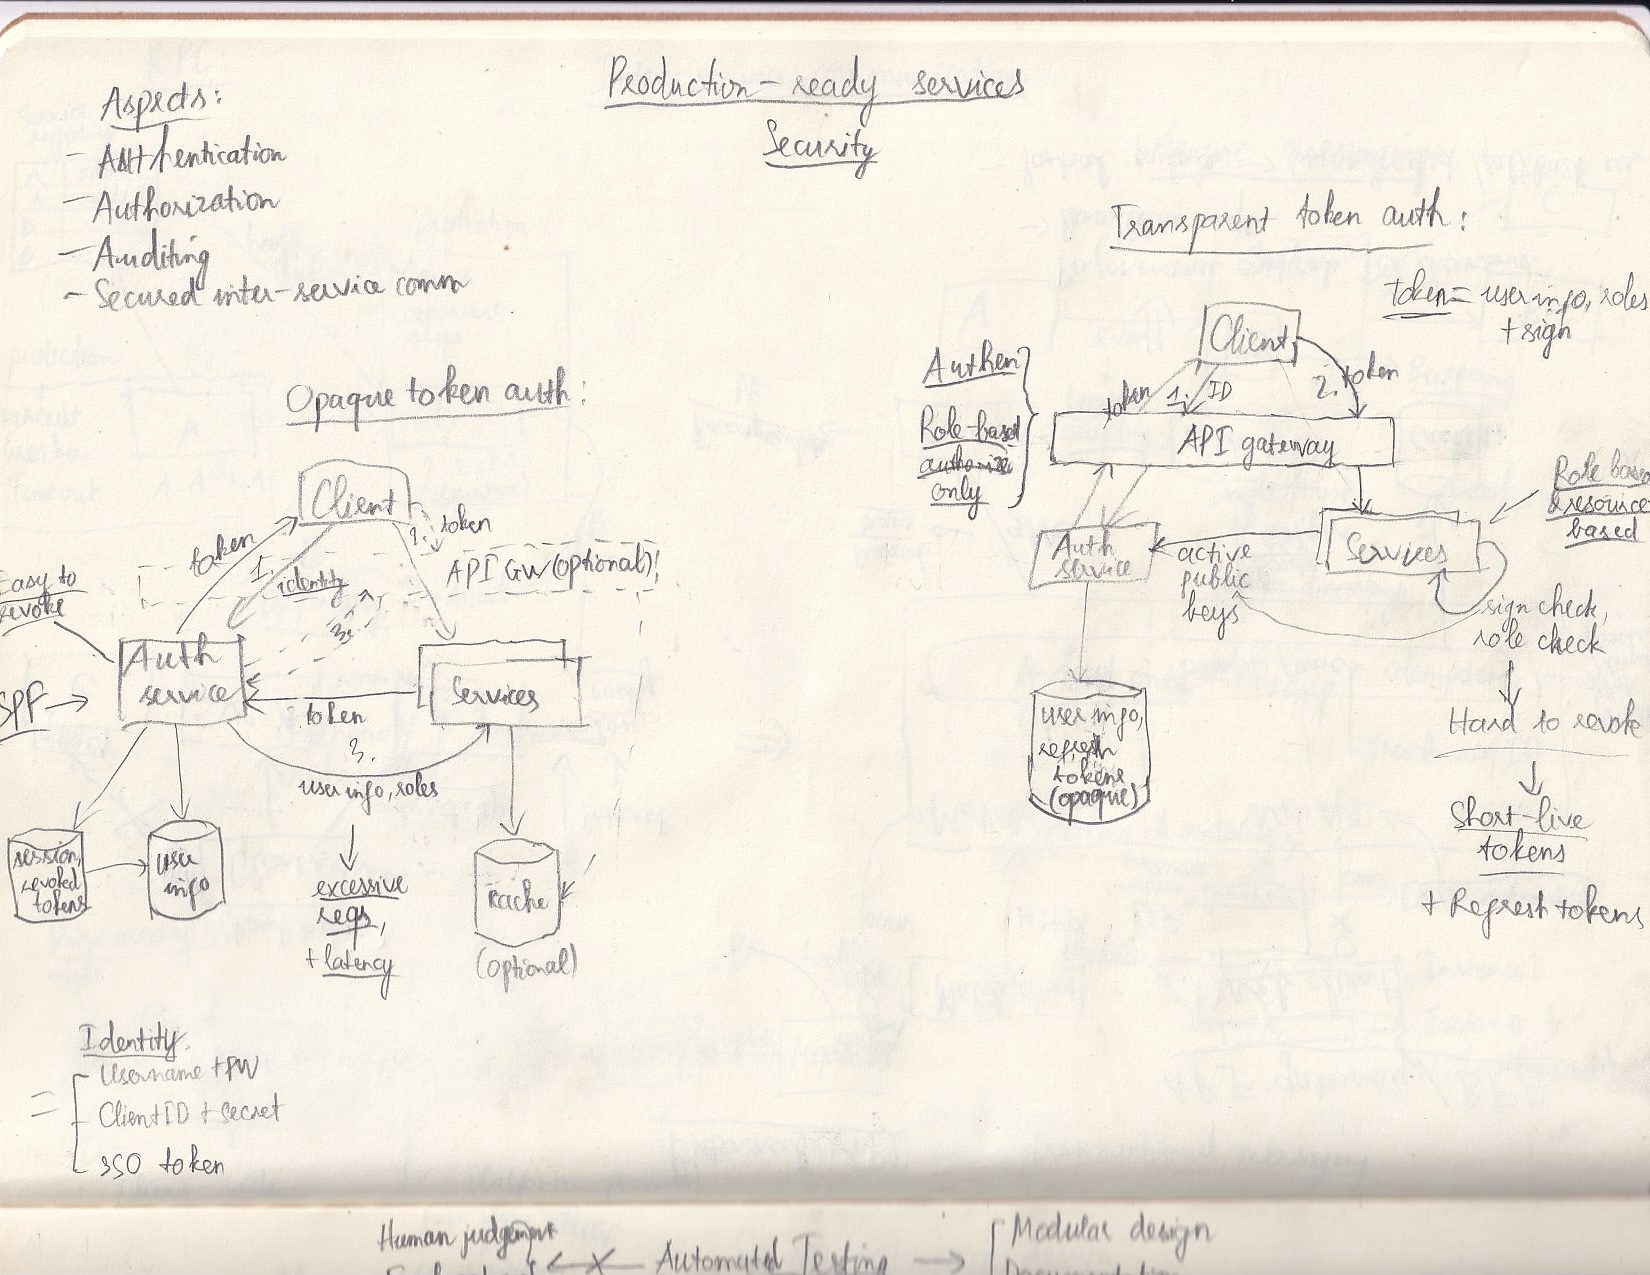 Production-ready services
Security
Aspects:
- Authentication
- Authorization
- Auditing
- Secured inter-service comm
Opaque token auth:
Client
token
1.
identity
2. token
API GW (optional)
3.
Easy to
revoke
Auth
service
SPF →
Services
token
3.
user info, roles
session,
revoked
tokens
user
info
excessive
reqs,
+ latency
cache
(optional)
Identity
=
Username + PW
Client ID + secret
SSO token
Transparent token auth:
token = user info, roles
+ sign
Client
token
1. ID
2. token
Authen
Role-based
authorize
only
API gateway
Role based
& resource
based
Auth
service
active
public
keys
Services
sign check,
role check
user info,
refresh
tokens
(opaque)
Hard to revoke
Short-live
tokens
+ Refrest tokens
Human judgement
Automated Testing
Modular design